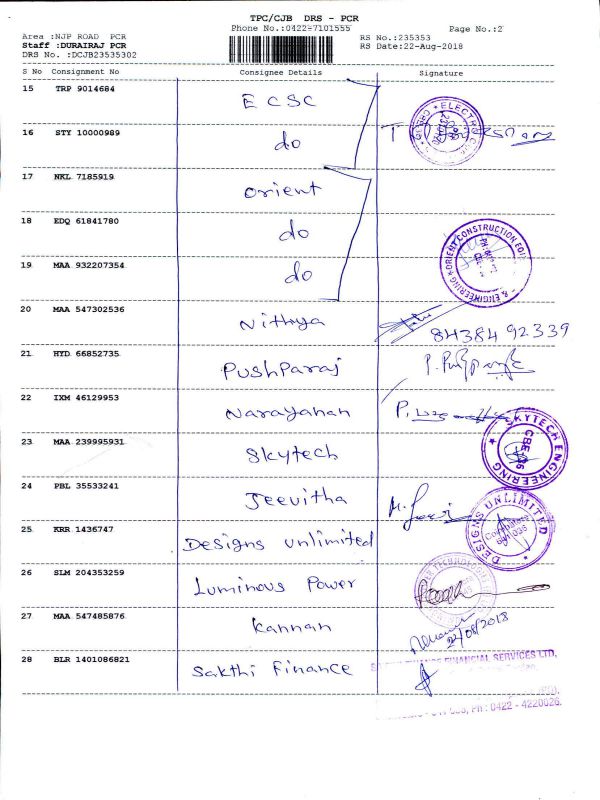 TPC/CJB DRS - PCR
Phone No.:0422-7101555 Page No.:2
Area :NJP ROAD PCR RS No.:235353
Staff :DURAIRAJ PCR RS Date:22-Aug-2018
DRS No. :DCJB23535302
S No Consignment No Consignee Details Signature
15 TRP 9014684 ECSC
16 STY 10000989 do
17 NKL 7185919 Orient
18 EDQ 61841780 do
19 MAA 932207354 do
ORIENT CONSTRUCTION & ENGINEERING
20 MAA 547302536 Nithya 84384 92339
21 HYD 66852735 PushParaj
22 IXM 46129953 Narayanan
23 MAA 239995931 Skytech
SKYTECH ENGINEERING
24 PBL 35533241 Jeevitha
25 KRR 1436747 Designs unlimited
DESIGNS UNLIMITED
26 SLM 204353259 Luminous Power
27 MAA 547485876 Kannan
28 BLR 1401086821 Sakthi Finance
FINANCIAL SERVICES LTD,
PH : 0422 - 4220026.